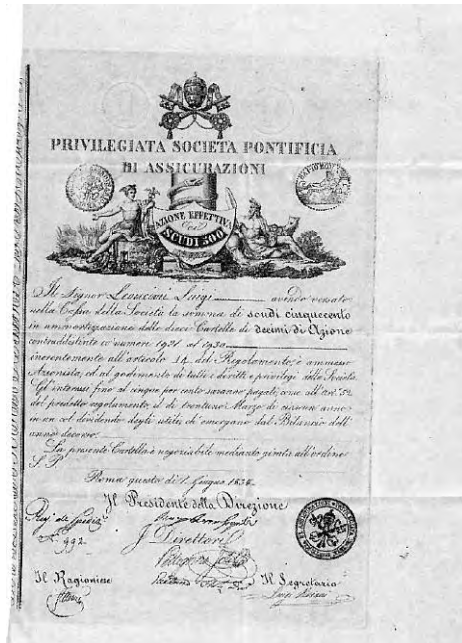 PRIVILEGIATA SOCIETÀ PONTIFICIA
DI ASSICURAZIONI
AZIONE EFFETTIVA
SCUDI 500
Il Signor Luigi avendo versato
nella Cassa della Società la somma di scudi cinquecento
in ammortizzazione delle dieci Cartelle di decimi di Azione
contraddistinte co' numeri 1921 al 1930
incorentemente all'articolo 14 del Regolamento, è ammesso
Azionista, ed al godimento di tutti i diritti e privilegi della Società.
Gl' interessi fino al cinque per cento saranno pagati, come all'art. 52
del predetto regolamento, il dì trentuno Marzo di ciascun anno
in un col dividendo degli utili, che emergano dal Bilancio dell'
anno decorso.
La presente Cartella è negoziabile mediante girata all'ordine
S. P.
Roma questo dì 1 Giugno 1834
Il Presidente della Direzione
992
I Direttori
Il Ragioniere
Il Segretario